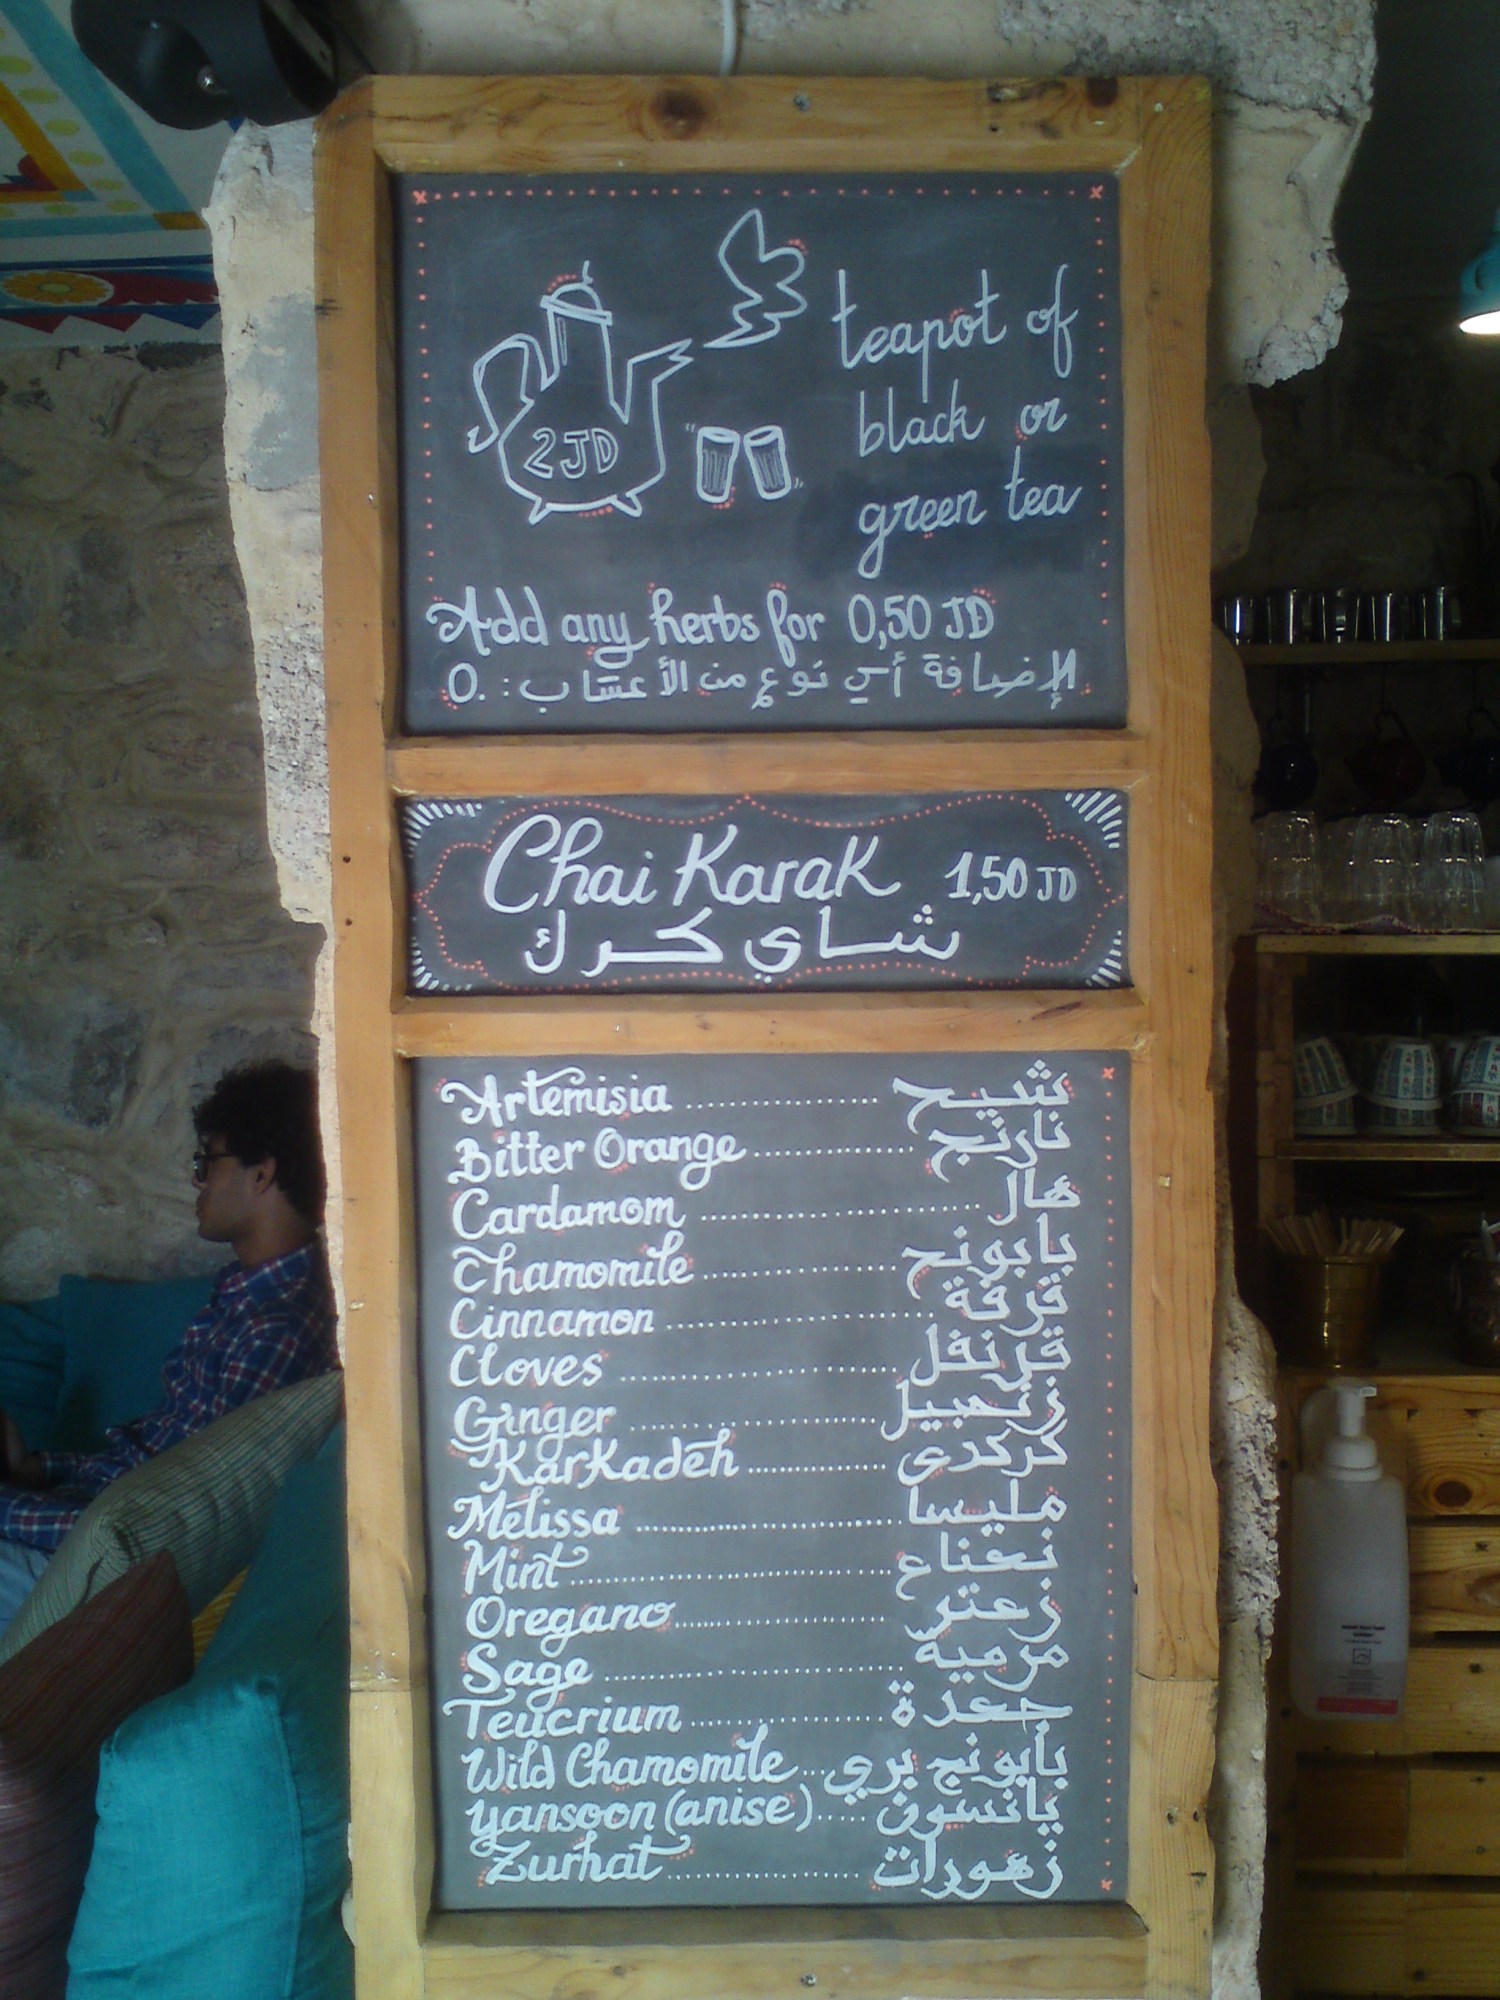 teapot of
black or
green tea
2JD
Add any herbs for 0,50 JD
لإضافة أي نوع من الأعشاب : .0
Chai Karak 1,50 JD
شاي كرك
Artemisia ................. شيح
Bitter Orange ............... نارنج
Cardamom ........................ هال
Chamomile .................. بابونج
Cinnamon ........................ قرفة
Cloves ........................ قرنفل
Ginger ..................... زنجبيل
Karkadeh ............... كركدى
Melissa ........................... مليسا
Mint ................................. نعناع
Oregano ...................... زعتر
Sage .............................. مرمية
Teucrium .................... جعدة
Wild Chamomile ... بابونج بري
Yansoon (anise) ..... يانسون
Zurhat .................... زهورات